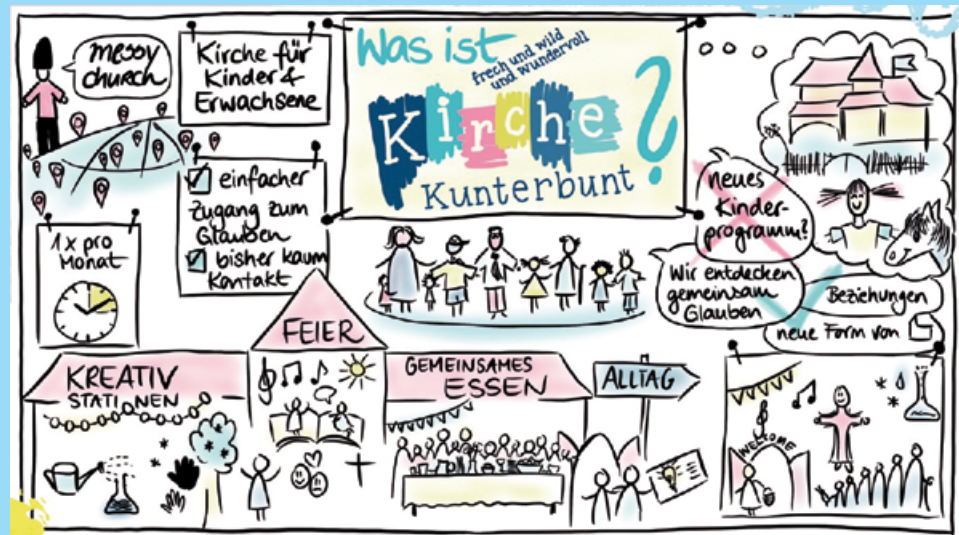 messy
church
Kirche für
Kinder &
Erwachsene
Was ist
frech und wild
und wundervoll
Kirche
Kunterbunt
?
einfacher
Zugang zum
Glauben
bisher kaum
Kontakt
1x pro
Monat
neues
Kinder-
programm?
Wir entdecken
gemeinsam
Glauben
Beziehungen
neue Form von
KREATIV
STATIONEN
FEIER
GEMEINSAMES
ESSEN
ALLTAG
WELCOME